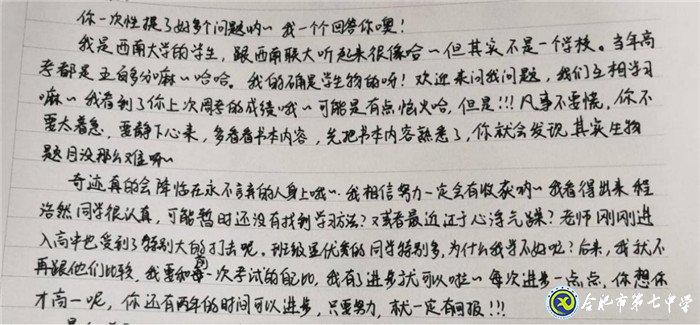 你一次性提了好多个问题哟~ 我一个个回答你噢！
我是西南大学的学生，跟西南联大听起来很像哈~但其实不是一个学校。当年高
考都是五百多分嘛~哈哈。我的确是学生物的呀！欢迎来问我问题，我们互相学习
嘛~我看到了你上次周考的成绩哦~可能是有点恼火哈，但是!!!凡事不要慌，你不
要太着急，要静下心来，多看看书本内容，先把书本内容熟悉了，你就会发现其实生物
题目没那么难嘛~
奇迹真的会降临在永不言弃的人身上哦~我相信努力一定会有收获哟~我看得出来程
浩然同学很认真，可能暂时还没有找到学习方法？又或者最近过于心浮气躁？老师刚刚进
入高中也受到了特别大的打击呢。班级里优秀的同学特别多，为什么我学不好呢？后来，我就不
再跟他们比较，我要和每一次考试的自己比，我有进步就可以啦~每次进步一点点，你想你
才高一呢，你还有两年的时间可以进步，只要努力，就一定有回报!!!
合肥市第七中学